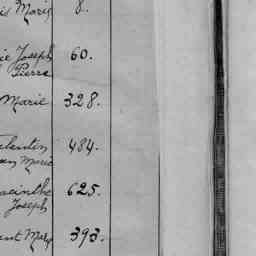 is Marie 8.
ie Joseph 60.
Pierre
Marie 328.
lentin 484.
an Marie
acinthe 625.
Joseph
ant Marie 393.